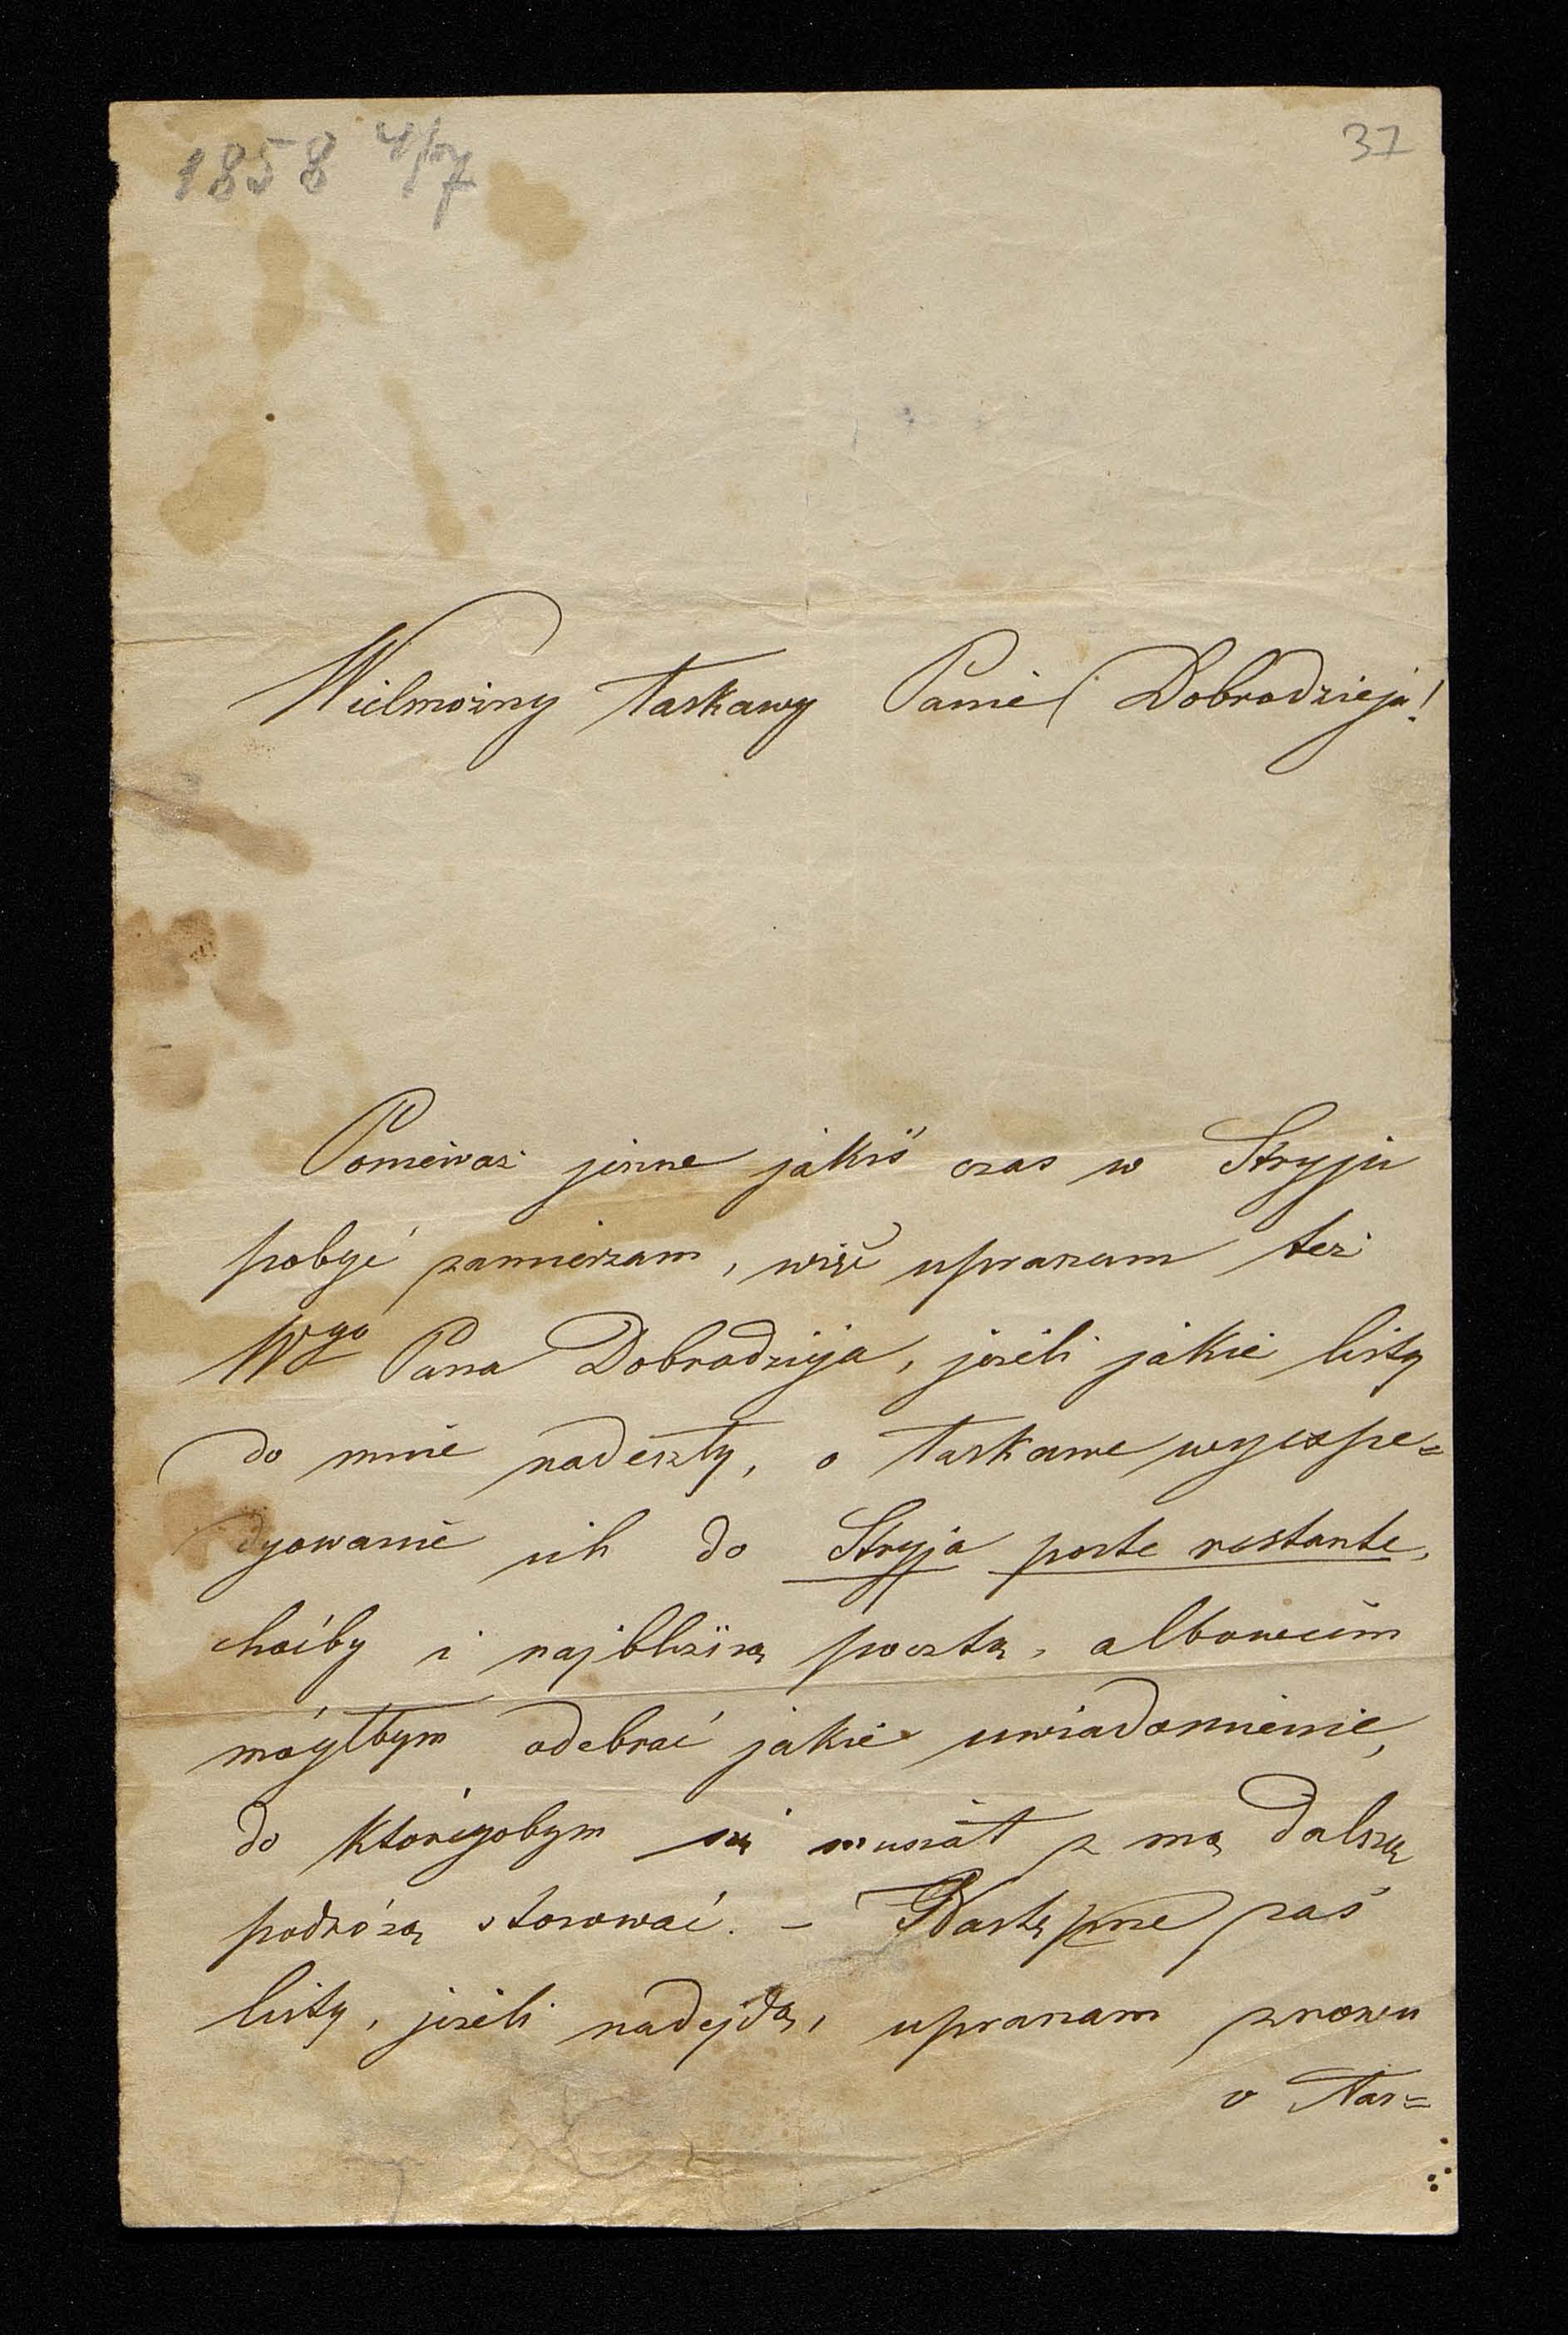 1858 4/7
37
Wielmożny Łaskawy Panie Dobrodzieju!
Ponieważ jeszcze jakiś czas w Stryju
pobyć zamierzam, więc upraszam też
Wgo Pana Dobrodzieja, jeżeli jakie listy
do mnie nadeszły, o łaskawe wyexpe=
dyowanie ich do Stryja poste restante,
choćby i najbliższą pocztą, albowiem
mógłbym odebrać jakie uwiadomienie,
do któregobym się musiał z mą dalszą
podróżą stosować. – Następne zaś
listy, jeżeli nadejdą, upraszam znowu
o łas=